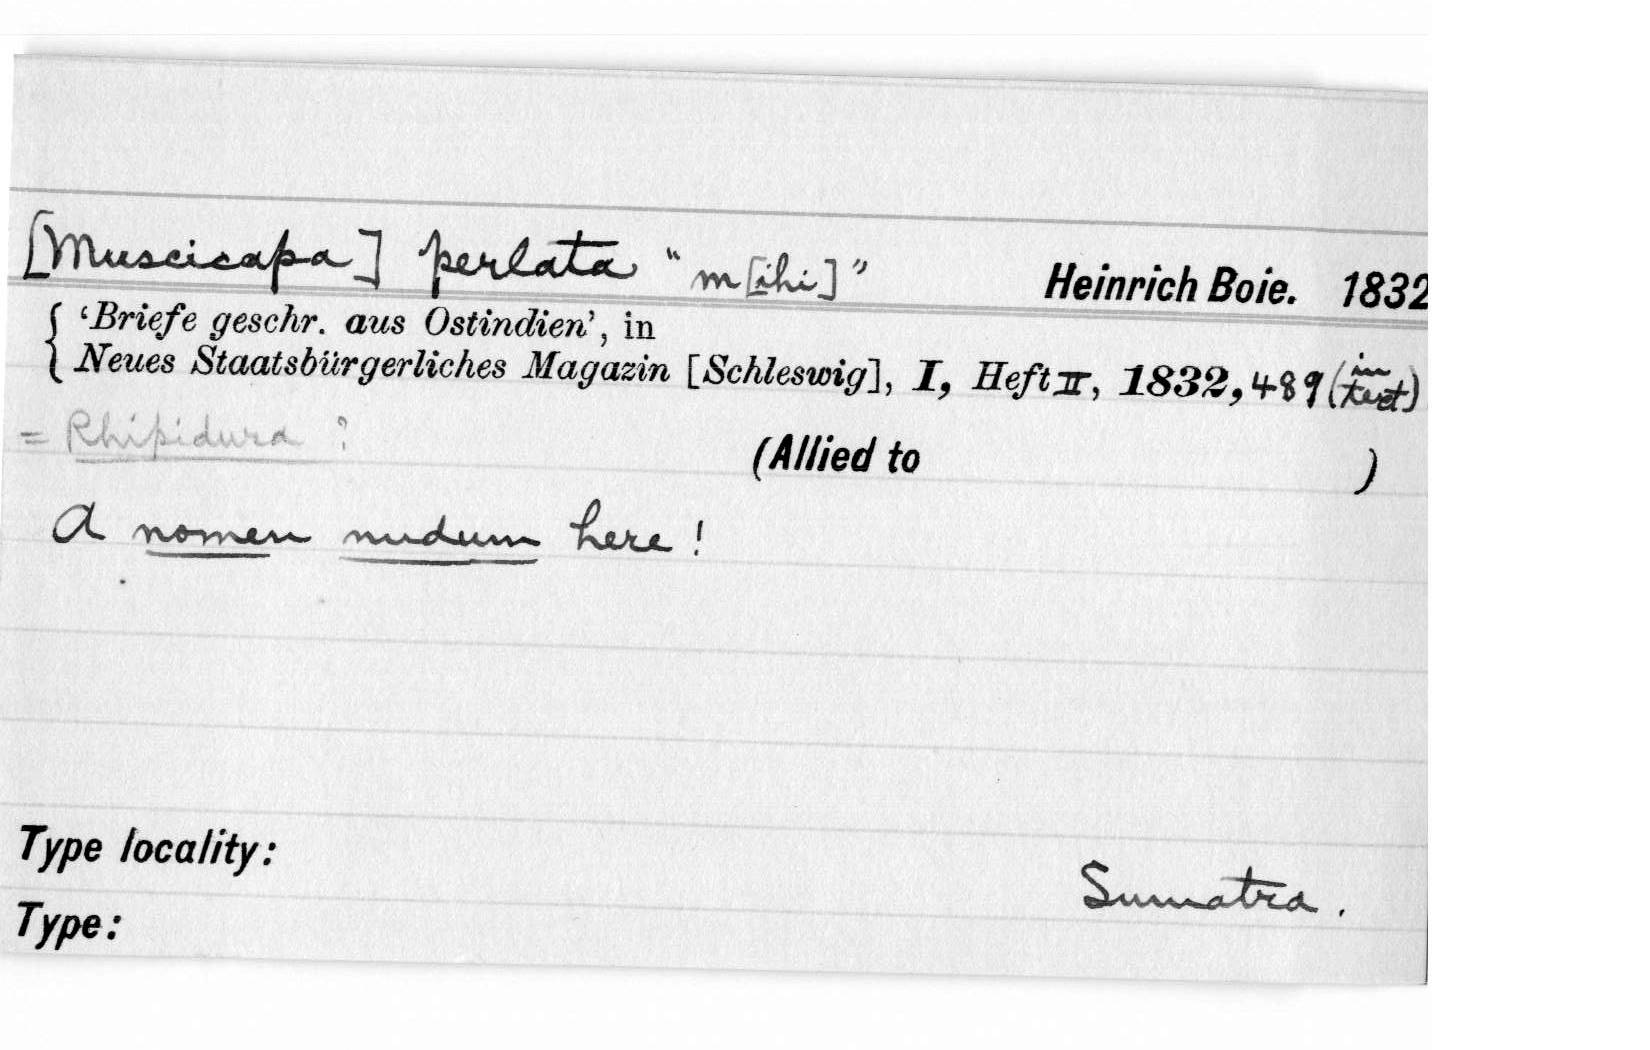 [Muscicapa] perlata "m[ihi]" Heinrich Boie. 1832
{ 'Briefe geschr. aus Ostindien', in
Neues Staatsbürgerliches Magazin [Schleswig], I, Heft II, 1832, 489 (in text)
= Rhipidura ?
(Allied to )
A nomen nudum here!
Type locality: Sumatra.
Type: